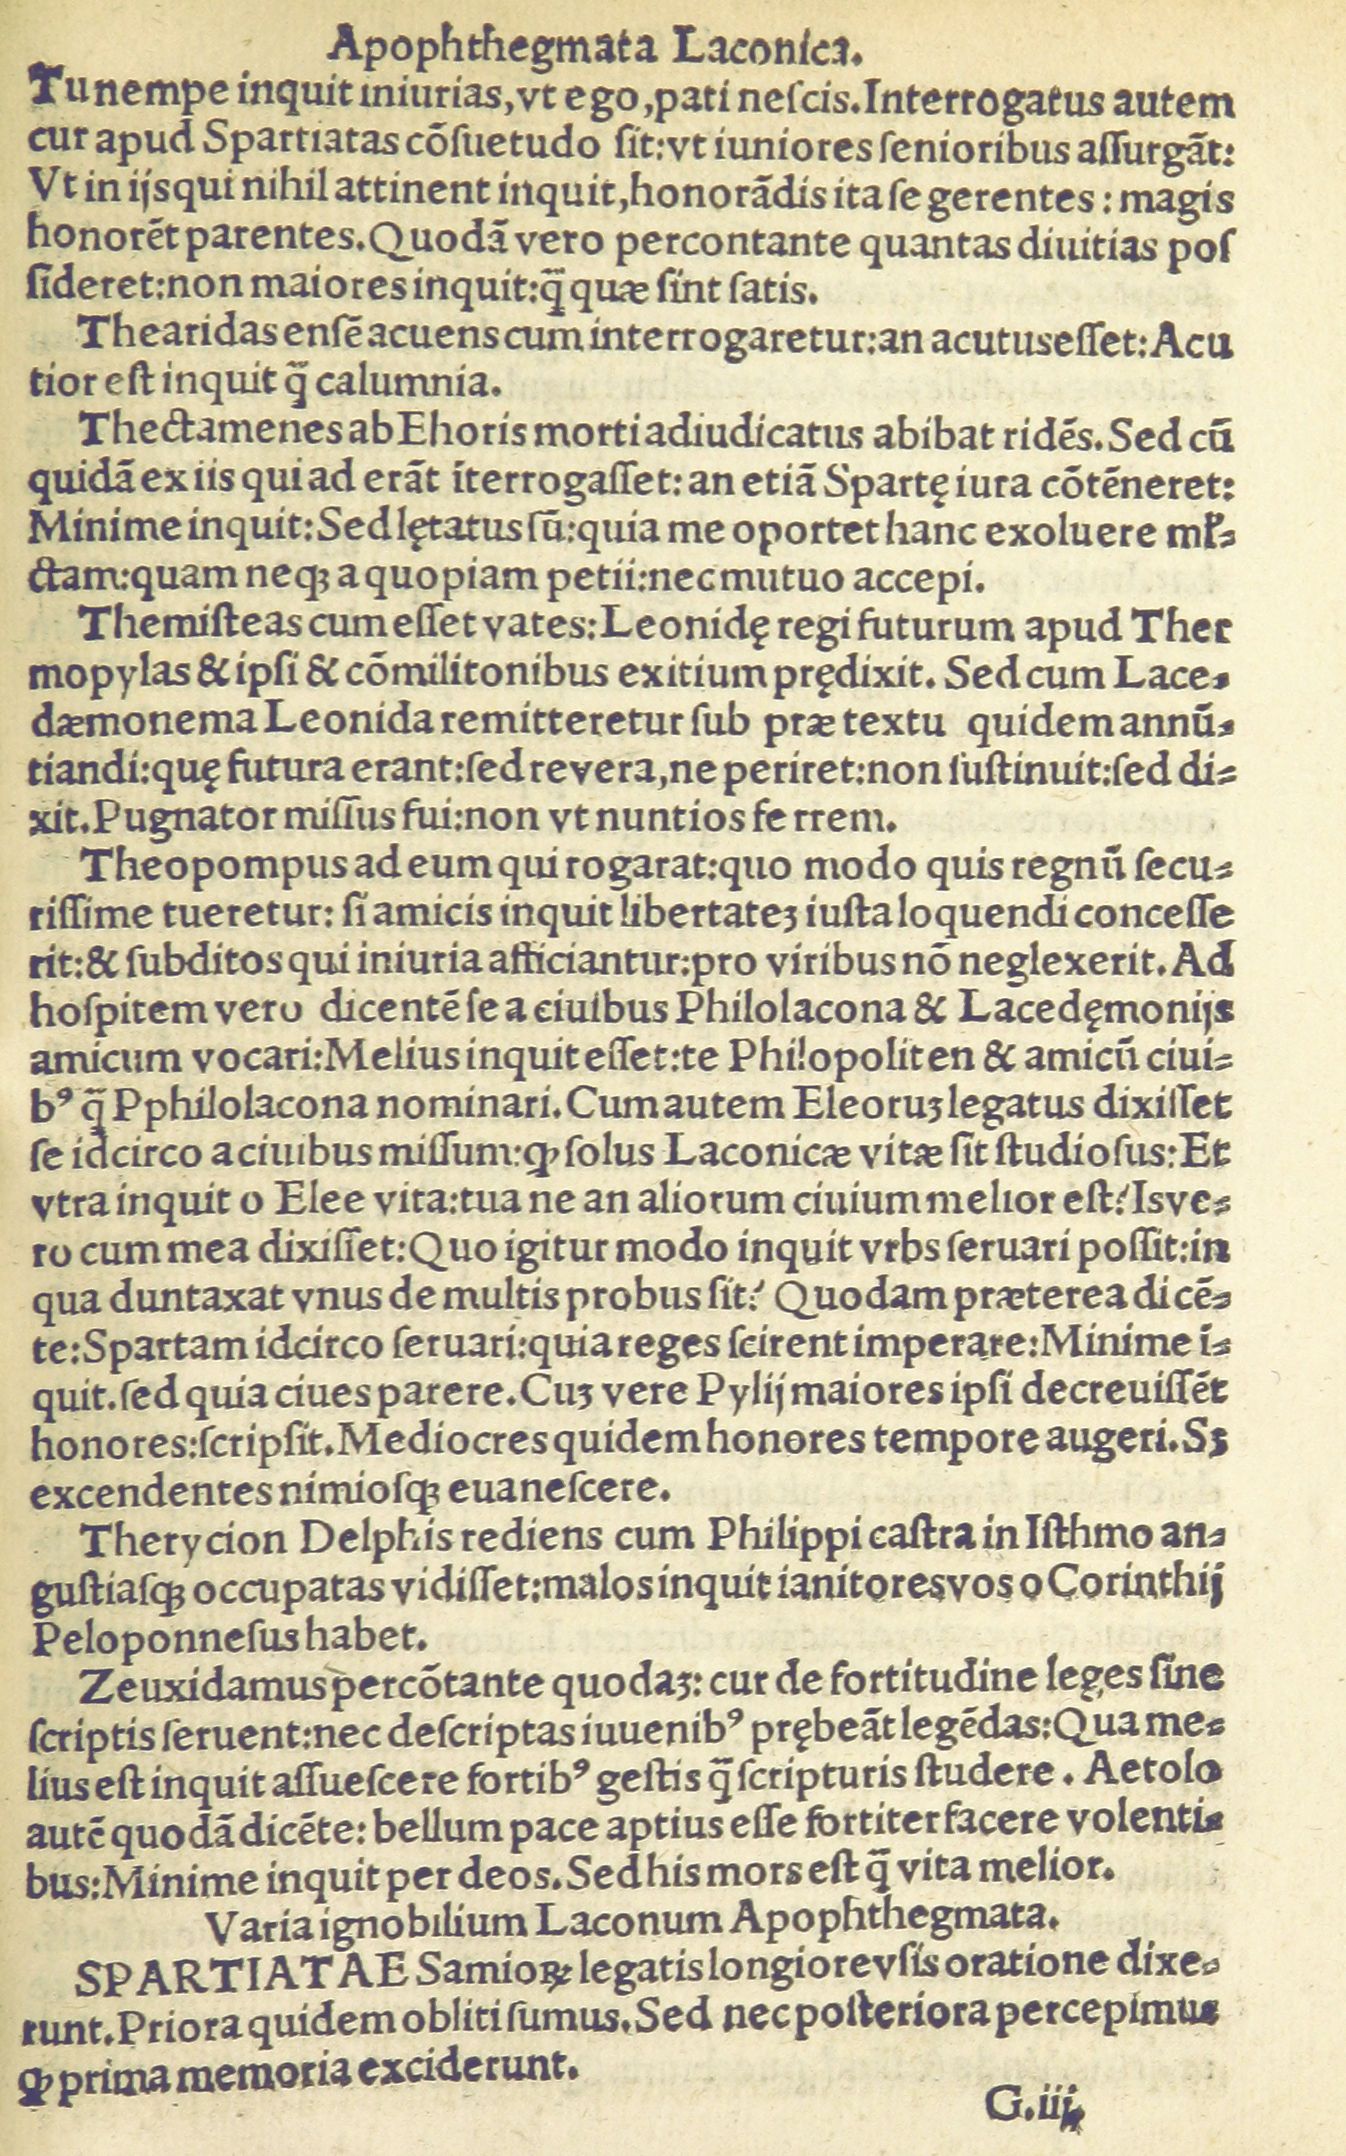 Apophthegmata Laconica.
Tu nempe inquit iniurias, vt ego, pati neſcis. Interrogatus autem
cur apud Spartiatas cōſuetudo ſit: vt iuniores ſenioribus aſſurgāt:
Vt in ijs qui nihil attinent inquit, honorādis ita ſe gerentes: magis
honorēt parentes. Quodā vero percontante quantas diuitias poſ
ſideret: non maiores inquit: q̄ quæ ſint ſatis.
Thearidas enſē acuens cum interrogaretur: an acutus eſſet: Acu
tior eſt inquit q̄ calumnia.
Thectamenes ab Ehoris morti adiudicatus abibat ridēs. Sed cū
quidā ex iis qui ad erāt īterrogaſſet: an etiā Spartę iura cōtēneret:
Minime inquit: Sed lętatus ſū: quia me oportet hanc exoluere ml̕-
ctam: quam neqꝫ a quopiam petii: nec mutuo accepi.
Themiſteas cum eſſet vates: Leonidę regi futurum apud Ther
mopylas & ipſi & cōmilitonibus exitium prędixit. Sed cum Lace-
dæmonem a Leonida remitteretur ſub præ textu quidem annū-
tiandi: quę futura erant: ſed re vera, ne periret: non ſuſtinuit: ſed di-
xit. Pugnator miſſus fui: non vt nuntios fe rrem.
Theopompus ad eum qui rogarat: quo modo quis regnū ſecu-
riſſime tueretur: ſi amicis inquit libertateꝫ iuſta loquendi conceſſe
rit: & ſubditos qui iniuria afficiantur: pro viribus nō neglexerit. Ad
hoſpitem vero dicentē ſe a ciuibus Philolacona & Lacedęmonijs
amicum vocari: Melius inquit eſſet: te Philopoliten & amicū ciui-
bꝰ q̄ Pphilolacona nominari. Cum autem Eleoruꝫ legatus dixiſſet
ſe idcirco a ciuibus miſſum: ꝙ ſolus Laconicæ vitæ ſit ſtudioſus: Et
vtra inquit o Elee vita: tua ne an aliorum ciuium melior eſt? Is ve-
ro cum mea dixiſſet: Quo igitur modo inquit vrbs ſeruari poſſit: in
qua duntaxat vnus de multis probus ſit? Quodam præterea dicē-
te: Spartam idcirco ſeruari: quia reges ſcirent imperare: Minime ī-
quit. ſed quia ciues parere. Cuꝫ vere Pylij maiores ipſi decreuiſſēt
honores: ſcripſit. Mediocres quidem honores tempore augeri. Sꝫ
excendentes nimioſqꝫ euaneſcere.
Therycion Delphis rediens cum Philippi caſtra in Iſthmo an-
guſtiaſqꝫ occupatas vidiſſet: malos inquit ianitores vos o Corinthij
Peloponneſus habet.
Zeuxidamus percōtante quodaꝫ: cur de fortitudine leges ſine
ſcriptis ſeruent: nec deſcriptas iuuenibꝰ prębeāt legēdas: Qua me-
lius eſt inquit aſſueſcere fortibꝰ geſtis q̄ ſcripturis ſtudere. Aetolo
autē quodā dicēte: bellum pace aptius eſſe fortiter facere volenti-
bus: Minime inquit per deos. Sed his mors eſt q̄ vita melior.
Varia ignobilium Laconum Apophthegmata.
SPARTIATAE Samioꝝ legatis longiore vſis oratione dixe-
runt. Priora quidem obliti ſumus. Sed nec poſteriora percepimus
ꝙ prima memoria exciderunt.
G.iij.